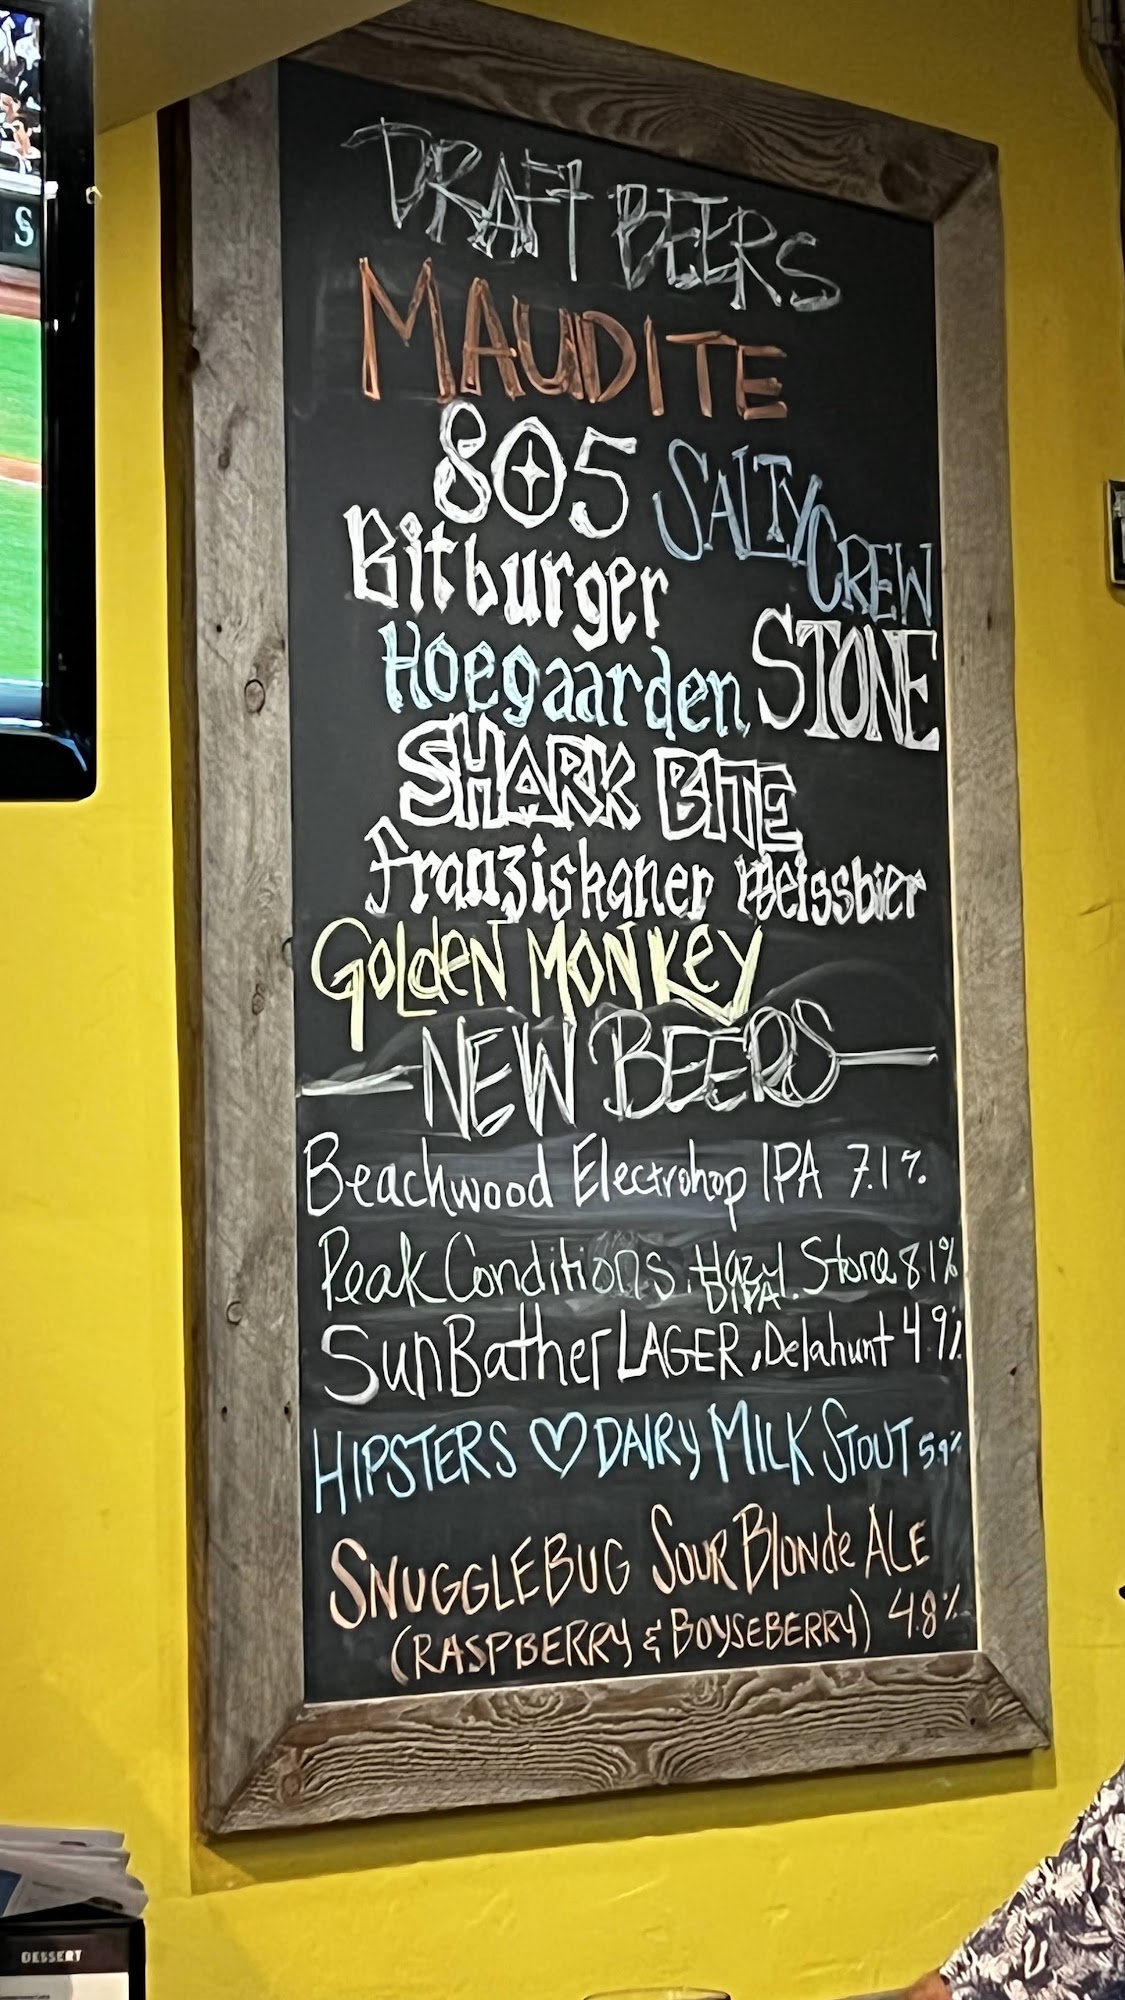 S
DRAFT BEERS
MAUDITE
805
SALTY CREW
Bitburger
Hoegaarden
STONE
SHARK BITE
Franziskaner Weissbier
GOLden MONKey
NEW BEERS
Beachwood Electrohop IPA 7.1%
Peak Conditions. Hazy DIPA. Stone 8.1%
SunBather LAGER, Delahunt 4.9%
HIPSTERS ♡ DAIRY MILK STOUT 5.9%
SNUGGLEBUG SOUR BLONDE ALE
(RASPBERRY & BOYSEBERRY) 4.8%
DESSERT